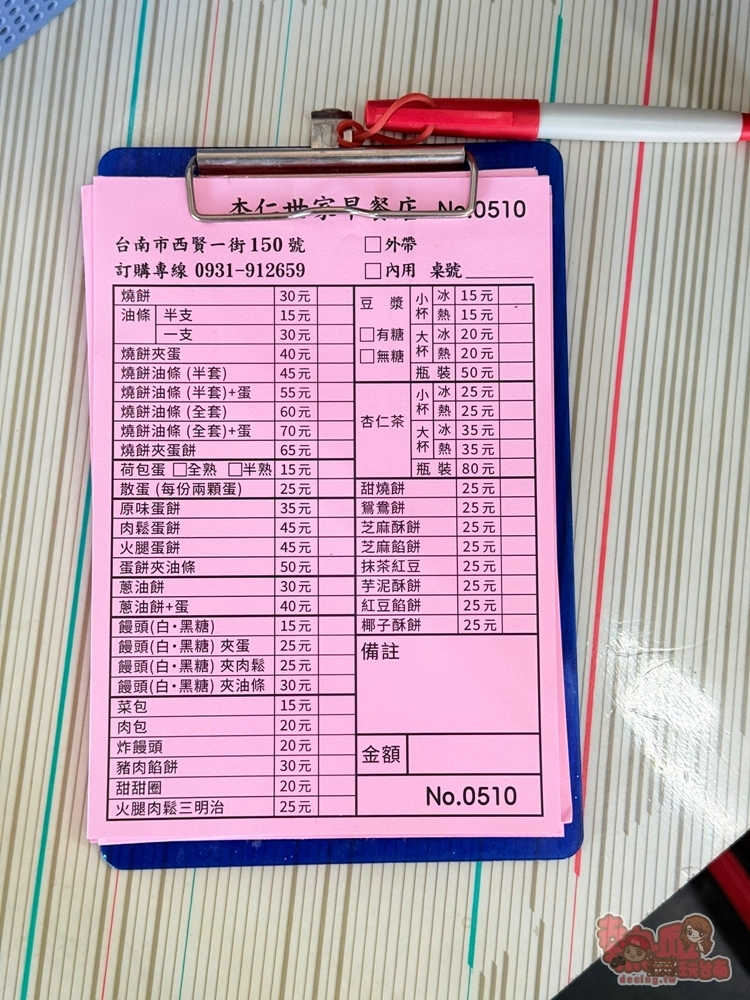 杏仁世家早餐店 No.0510
台南市西賢一街150號 □外帶
訂購專線 0931-912659 □內用 桌號
燒餅 30元
油條 半支 15元
一支 30元
燒餅夾蛋 40元
燒餅油條 (半套) 45元
燒餅油條 (半套)+蛋 55元
燒餅油條 (全套) 60元
燒餅油條 (全套)+蛋 70元
燒餅夾蛋餅 65元
荷包蛋 □全熟 □半熟 15元
散蛋 (每份兩顆蛋) 25元
原味蛋餅 35元
肉鬆蛋餅 45元
火腿蛋餅 45元
蛋餅夾油條 50元
蔥油餅 30元
蔥油餅+蛋 40元
饅頭(白·黑糖) 15元
饅頭(白·黑糖) 夾蛋 25元
饅頭(白·黑糖) 夾肉鬆 25元
饅頭(白·黑糖) 夾油條 30元
菜包 15元
肉包 20元
炸饅頭 20元
豬肉餡餅 30元
甜甜圈 20元
火腿肉鬆三明治 25元
豆漿 □有糖 □無糖
小杯 冰 15元
熱 15元
大杯 冰 20元
熱 20元
瓶裝 50元
杏仁茶
小杯 冰 25元
熱 25元
大杯 冰 35元
熱 35元
瓶裝 80元
甜燒餅 25元
鴛鴦餅 25元
芝麻酥餅 25元
芝麻餡餅 25元
抹茶紅豆 25元
芋泥酥餅 25元
紅豆餡餅 25元
椰子酥餅 25元
備註
金額
No.0510
decing.tw